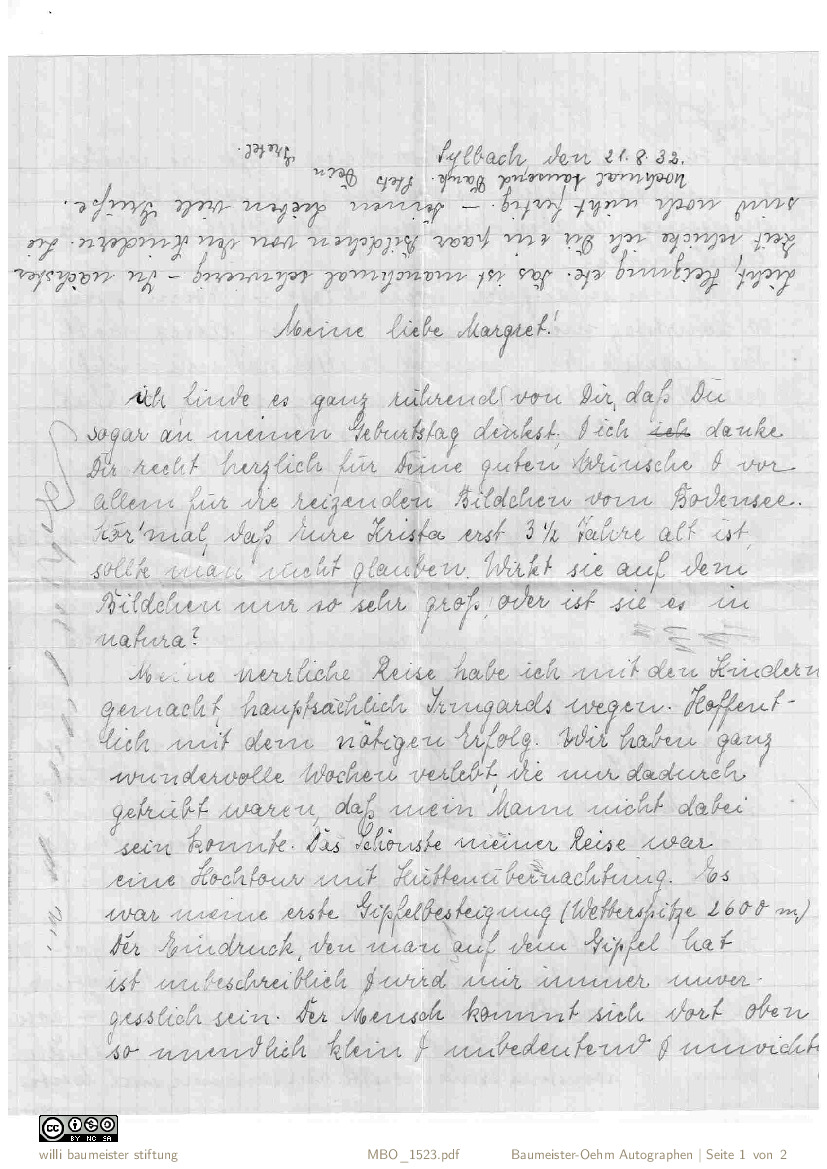 Sylbach den 21.8.32.
Meine liebe Margret!
ich finde es ganz rührend von Dir, daß Du
sogar an meinen Geburtstag denkst. Ich ich danke
Dir recht herzlich für Deine guten Wünsche & vor
allem für die reizenden Bildchen vom Bodensee.
Hör' mal, daß Eure Krista erst 3½ Jahre alt ist,
sollte man nicht glauben. Wirkt sie auf dem
Bildchen nur so sehr groß, oder ist sie es in
natura?
Meine herrliche Reise habe ich mit den Kindern
gemacht, hauptsächlich Irmgards wegen. Hoffent-
lich mit dem nötigen Erfolg. Wir haben ganz
wundervolle Wochen verlebt, die nur dadurch
getrübt waren, daß mein Mann nicht dabei
sein konnte. Das Schönste meiner Reise war
eine Hochtour mit Hüttenübernachtung. Es
war meine erste Gipfelbesteigung (Wetterspitze 2600 m)
Der Eindruck, den man auf dem Gipfel hat
ist unbeschreiblich & wird mir immer unver-
gesslich sein. Der Mensch kommt sich dort oben
so unendlich klein & unbedeutend & unwicht
Licht, Heizung etc. Das ist manchmal schwierig – In nächster
Zeit schicke ich Dir ein paar Bildchen von den Kindern. Sie
sind noch nicht fertig. – Deinen Lieben viele Grüße.
Nochmal tausend Dank. Stets Dein
Gretel.
willi baumeister stiftung
MBO_1523.pdf
Baumeister-Oehm Autographen | Seite 1 von 2
BY NC SA